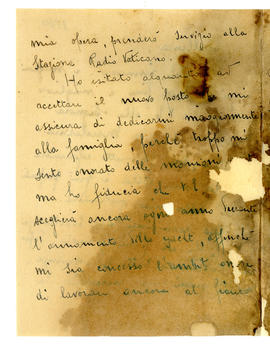 mia opera, prenderò servizio alla
Stazione Radio Vaticano.
Ho esitato alquanto ad
accettare il nuovo posto e mi
assicura di dedicarmi maggiormente
alla famiglia, perché troppo mi
sento onorato delle mansioni
ma ho fiducia che V.E.
sceglierà ancora ogni anno durante
l'armamento dello yacht, affinché
mi sia concesso l'ambito onore
di lavorare ancora al fianco